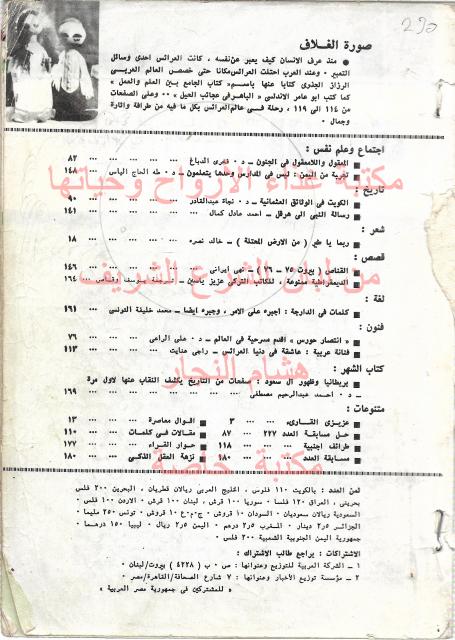 290
صورة الغلاف
● منذ عرف الانسان كيف يعبر عن نفسه ، كانت العرائس احدى وسائل
التعبير . وعند العرب احتلت العرائس مكانا حتى خصص العالم العربي
الرزاز الجذري كتابا عنها باسم « كتاب الجامع بين العلم والعمل »
كما كتب ابو عامر الاندلسي « الباهر في عجائب الحيل » .. وعلى الصفحات
من ١١٤ الى ١١٩ ، رحلة في عالم العرائس بكل ما فيه من طرافة واثارة
وجمال .
اجتماع وعلم نفس :
■ المعقول واللامعقول في الجنون ــ د . فخرى الدباغ ... ... ... ٨٢
■ تجربة من اليمن : ليس في المدارس وحدها يتعلمون ــ د . طه الحاج الياس ١٤٨
تاريخ :
■ الكويت في الوثائق العثمانية ــ د . نجاة عبدالقادر ... ... ... ٩٠
■ رسالة النبي الى هرقل ــ احمد عادل كمال ... ... ... ١٤١
شعر :
■ ربما يا طير ( من الارض المحتلة ) ــ خالد نصره ... ... ... ١٨
قصص :
■ القناص ( بيروت ٧٥ ــ ٧٦ ) ــ نهى ايرانى ... ... ... ١٤٦
■ الديمقراطية ممنوعة . للكاتب التركي عزيز ياسين ــ ترجمة يوسف ١٦٤
لغة :
■ كلمات في الدارجة : اجبره على الامر ، وجبره ايضا ــ محمد خليفة التونسي . ١٦١
فنون :
■ « انتصار حورس » اقدم مسرحية في العالم ــ د . على الراعى ... ... ٧٦
■ فنانة عربية : عاشقة في دنيا العرائس ــ راجى عنايت ... ... ١١٣
كتاب الشهر :
■ بريطانيا وظهور آل سعود : صفحات من التاريخ يكشف النقاب عنها لاول مرة
ــ د . احمد عبدالرحيم مصطفى ... ... ... ١٦٩
منتوعات :
■ عزيزى القارىء ... ... ... ٣ ■ اقوال معاصرة ... ... ١٣
■ حل مسابقة العدد ٢٢٧ ... ٨٧ ■ مقالات في كلمات ... ... ١١٠
■ طرائف اجنبية ... ... ١١٨ ■ حوار القراء ... ... ١٧٧
■ مسابقة العدد ... ... ١٨٠ ■ نزهة العقل الذكى ... ١٨٠
مكتبة غذاء الأرواح وحياتها
من لبان الشرع الشريف
هشام النجار
مكتبة خاصة
ثمن العدد : بالكويت ١١٠ فلوس ، الخليج العربي ريالان قطريان ، البحرين ٢٠٠ فلس
بحرينى ، العراق ١٢٠ فلسا ، سوريا ١٠٠ قرش ، لبنان ١٠٠ قرش ، الاردن ١٠٠ فلس
السعودية ريالان سعوديان ، السودان ١٠ قروش ، ج.م.ع ١٠ قروش ، تونس ٢٥٠ مليما ،
الجزائر ٢٫٥ دينار ، المغرب ٢٫٥ درهم ، اليمن ٢٫٥ ريال ، ليبيا ١٥٠ درهما ،
جمهورية اليمن الجنوبية الشعبية ٢٠٠ فلس .
الاشتراكات : يراجع طالب الاشتراك :
١ ــ الشركة العربية للتوزيع وعنوانها : ص . ب ( ٤٢٢٨ ) بيروت/لبنان .
٢ ــ مؤسسة توزيع الاخبار وعنوانها : ٧ شارع الصحافة/القاهرة/مصر
« للمشتركين في جمهورية مصر العربية »